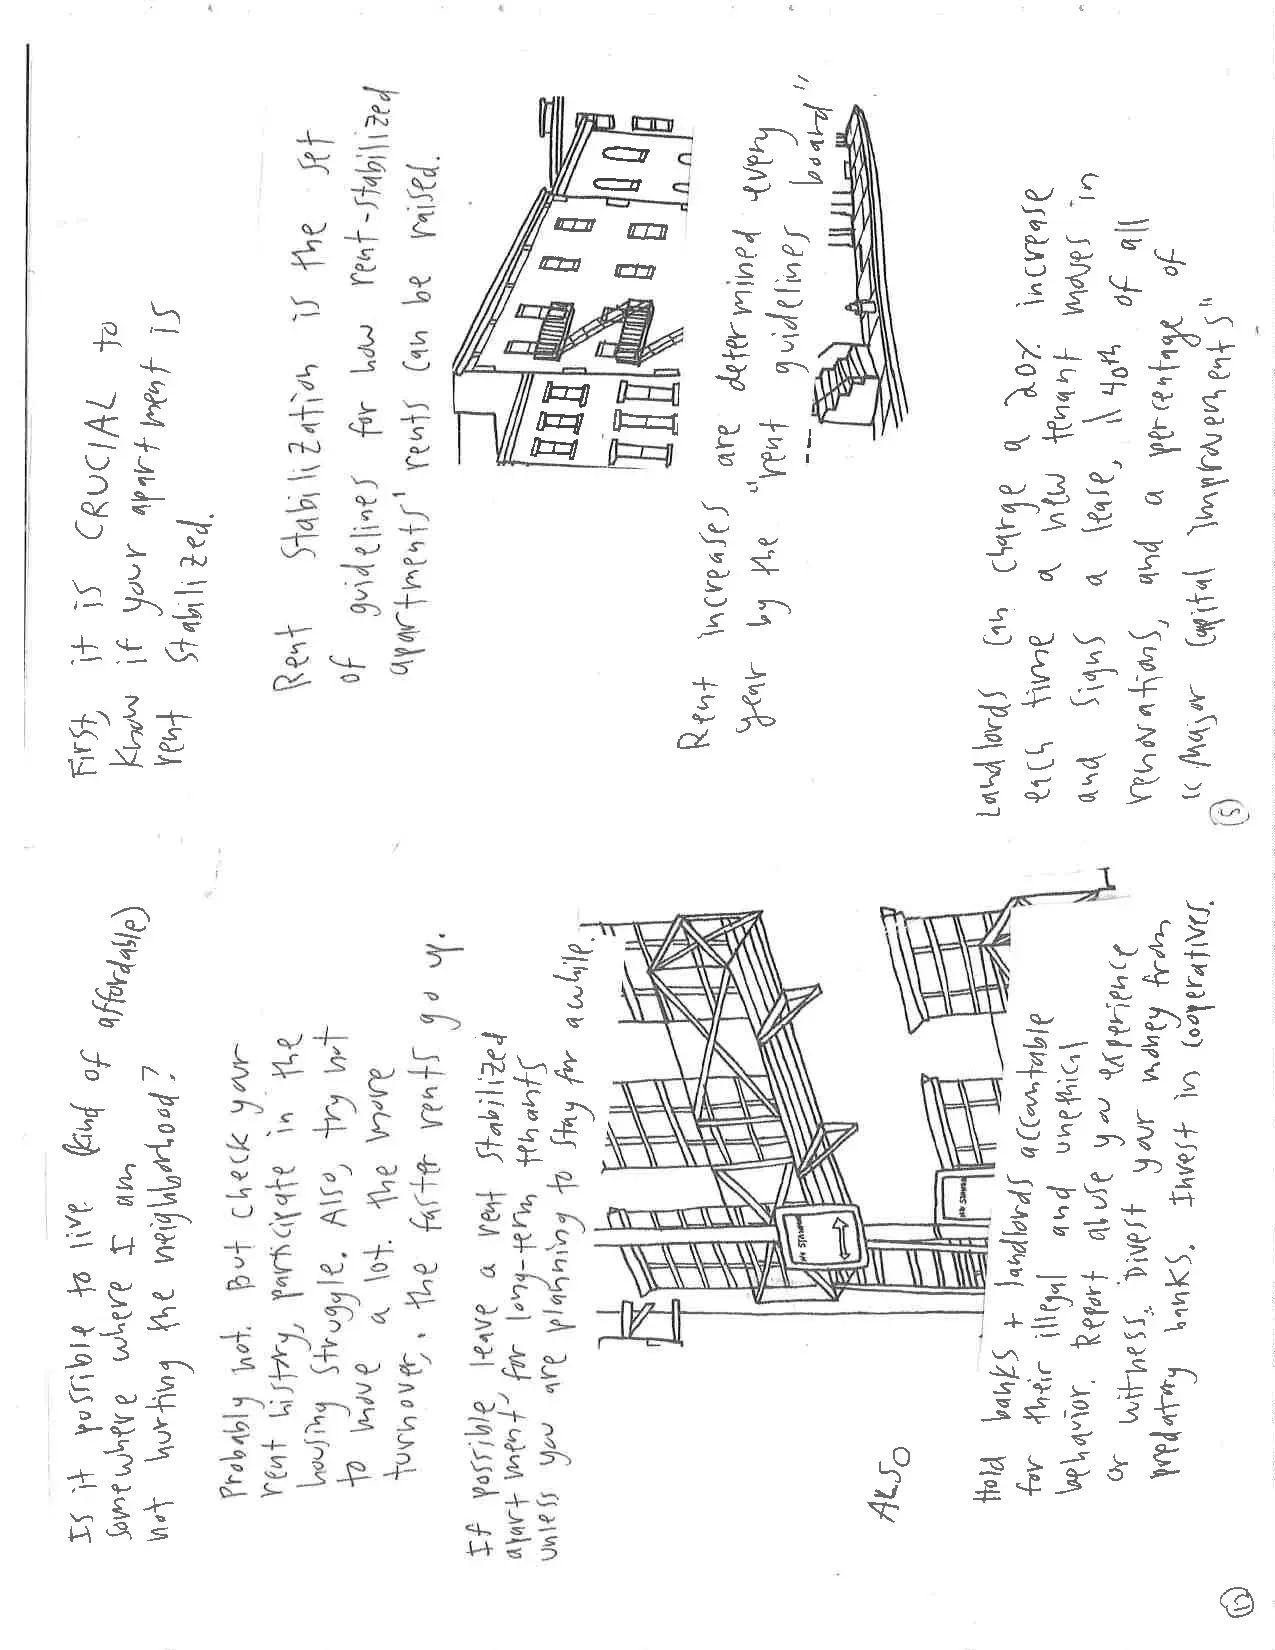 Is it possible to live (kind of affordable)
somewhere where I am
not hurting the neighborhood?
Probably not. But check your
rent history, participate in the
housing struggle. Also, try not
to move a lot. the more
turnover, the faster rents go up.
If possible, leave a rent stabilized
apartment, for long-term tenants
unless you are planning to stay for awhile.
NO STANDING
NO STANDING
ALSO
Hold banks + landlords accountable
for their illegal and unethical
behavior. Report abuse you experience
or witness. Divest your money from
predatory banks. Invest in cooperatives.
First, it is CRUCIAL to
know if your apartment is
rent stabilized.
Rent stabilization is the set
of guidelines for how rent-stabilized
apartments' rents can be raised.
Rent increases are determined every
year by the "rent guidelines board"
Landlords can charge a 20% increase
each time a new tenant moves in
and signs a lease, 1/40th of all
renovations, and a percentage of
"Major Capital Improvements"
5